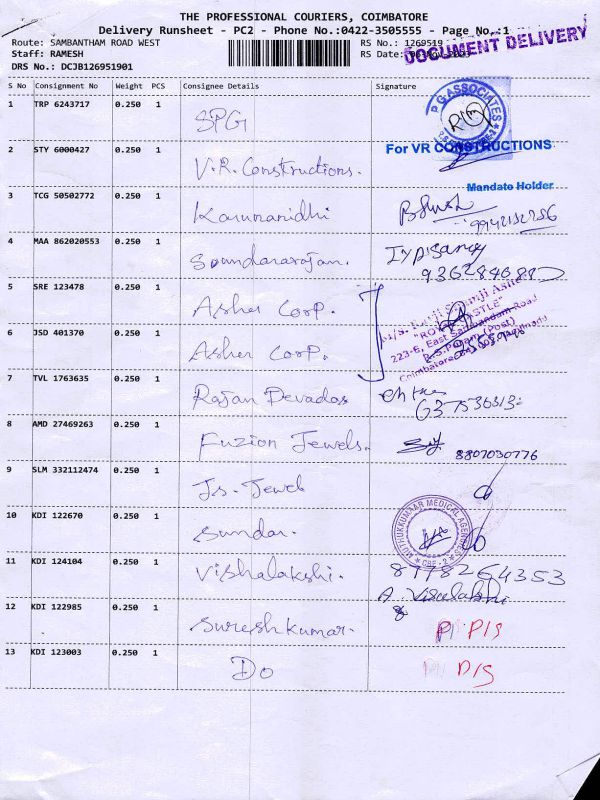 THE PROFESSIONAL COURIERS, COIMBATORE
Delivery Runsheet - PC2 - Phone No.:0422-3505555 - Page No.:1
Route: SAMBANTHAM ROAD WEST RS No.: 1269519
Staff: RAMESH RS Date:
DOCUMENT DELIVERY
DRS No.: DCJB126951901
S No Consignment No Weight PCS Consignee Details Signature
1 TRP 6243717 0.250 1 SPG
P G ASSOCIATES
2 STY 6000427 0.250 1 V.R. Constructions.
For VR CONSTRUCTIONS
Mandate Holder
3 TCG 50502772 0.250 1 Karunanidhi
9942152756
4 MAA 862020553 0.250 1 Soundararajan.
5 SRE 123478 0.250 1 Asher Coop.
223-E, East Sambandam Road
6 JSD 401370 0.250 1 Asher Coop.
7 TVL 1763635 0.250 1 Rajan Devadas
8 AMD 27469263 0.250 1 Fuzion Jewels.
8807030776
9 SLM 332112474 0.250 1 Js. Jewel
10 KDI 122670 0.250 1 Sundar.
MUTHUKKUMAAR MEDICAL AGENCIES
CBE - 2
11 KDI 124104 0.250 1 Vishalakshi.
A. Visalakshi
12 KDI 122985 0.250 1 Sureshkumar.
13 KDI 123003 0.250 1 Do
D/S